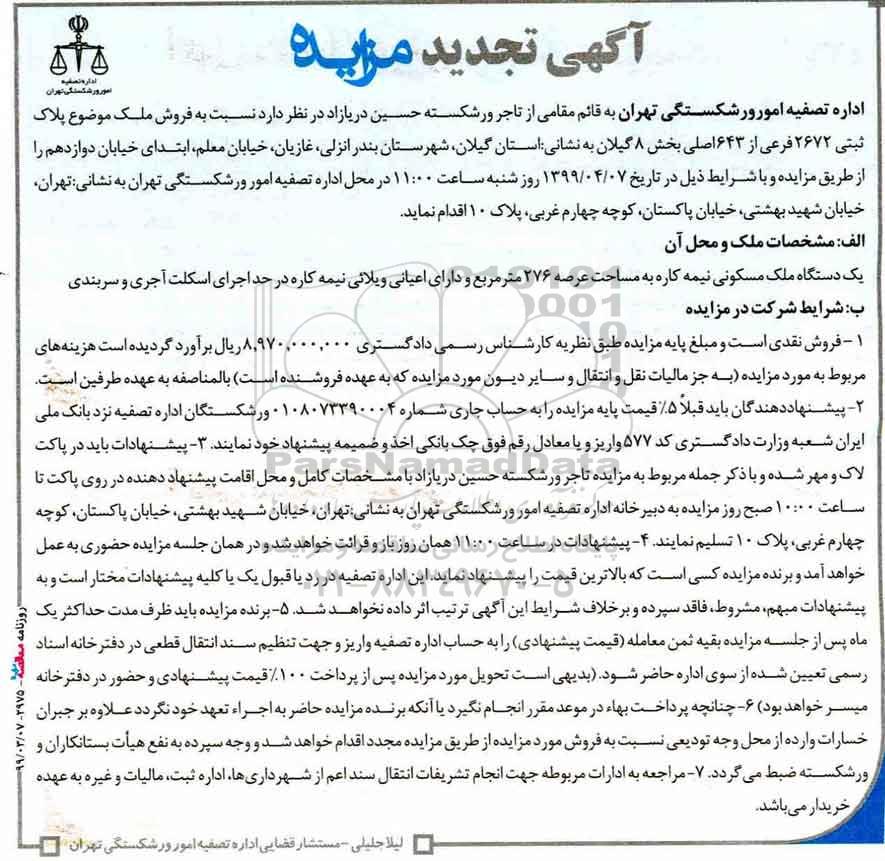 آگهی تجدید مزایده
اداره تصفیه
امور ورشکستگی تهران
اداره تصفیه امور ورشکستگی تهران به قائم مقامی از تاجر ورشکسته حسین دریازاد در نظر دارد نسبت به فروش ملک موضوع پلاک
ثبتی ۲۶۷۲ فرعی از ۶۴۳ اصلی بخش ۸ گیلان به نشانی: استان گیلان، شهرستان بندر انزلی، غازیان، خیابان معلم، ابتدای خیابان دوازدهم را
از طریق مزایده و با شرایط ذیل در تاریخ ۱۳۹۹/۰۴/۰۷ روز شنبه ساعت ۱۱:۰۰ در محل اداره تصفیه امور ورشکستگی تهران به نشانی: تهران،
خیابان شهید بهشتی، خیابان پاکستان، کوچه چهارم غربی، پلاک ۱۰ اقدام نماید.
الف: مشخصات ملک و محل آن
یک دستگاه ملک مسکونی نیمه کاره به مساحت عرصه ۲۷۶ مترمربع و دارای اعیانی ویلائی نیمه کاره در حد اجرای اسکلت آجری و سربندی
ب: شرایط شرکت در مزایده
۱- فروش نقدی است و مبلغ پایه مزایده طبق نظریه کارشناس رسمی دادگستری ۸,۹۷۰,۰۰۰,۰۰۰ ریال برآورد گردیده است هزینه‌های
مربوط به مورد مزایده (به جز مالیات نقل و انتقال و سایر دیون مورد مزایده که به عهده فروشنده است) بالمناصفه به عهده طرفین است.
۲- پیشنهاددهندگان باید قبلاً ۵٪ قیمت پایه مزایده را به حساب جاری شماره ۰۱۰۸۰۷۳۳۹۰۰۰۴ ورشکستگان اداره تصفیه نزد بانک ملی
ایران شعبه وزارت دادگستری کد ۵۷۷ واریز و یا معادل رقم فوق چک بانکی اخذ و ضمیمه پیشنهاد خود نمایند. ۳- پیشنهادات باید در پاکت
لاک و مهر شده و با ذکر جمله مربوط به مزایده تاجر ورشکسته حسین دریازاد با مشخصات کامل و محل اقامت پیشنهاد دهنده در روی پاکت تا
ساعت ۱۰:۰۰ صبح روز مزایده به دبیرخانه اداره تصفیه امور ورشکستگی تهران به نشانی: تهران، خیابان شهید بهشتی، خیابان پاکستان، کوچه
چهارم غربی، پلاک ۱۰ تسلیم نمایند. ۴- پیشنهادات در ساعت ۱۱:۰۰ همان روز باز و قرائت خواهد شد و در همان جلسه مزایده حضوری به عمل
خواهد آمد و برنده مزایده کسی است که بالاترین قیمت را پیشنهاد نماید. این اداره تصفیه در رد یا قبول یک یا کلیه پیشنهادات مختار است و به
پیشنهادات مبهم، مشروط، فاقد سپرده و برخلاف شرایط این آگهی ترتیب اثر داده نخواهد شد. ۵- برنده مزایده باید ظرف مدت حداکثر یک
ماه پس از جلسه مزایده بقیه ثمن معامله (قیمت پیشنهادی) را به حساب اداره تصفیه واریز و جهت تنظیم سند انتقال قطعی در دفترخانه اسناد
رسمی تعیین شده از سوی اداره حاضر شود. (بدیهی است تحویل مورد مزایده پس از پرداخت ۱۰۰٪ قیمت پیشنهادی و حضور در دفترخانه
میسر خواهد بود) ۶- چنانچه پرداخت بهاء در موعد مقرر انجام نگیرد یا آنکه برنده مزایده حاضر به اجراء تعهد خود نگردد علاوه بر جبران
خسارات وارده از محل وجه تودیعی نسبت به فروش مورد مزایده از طریق مزایده مجدد اقدام خواهد شد و وجه سپرده به نفع هیأت بستانکاران و
ورشکسته ضبط می‌گردد. ۷- مراجعه به ادارات مربوطه جهت انجام تشریفات انتقال سند اعم از شهرداری‌ها، اداره ثبت، مالیات و غیره به عهده
خریدار می‌باشد.
لیلا جلیلی - مستشار قضایی اداره تصفیه امور ورشکستگی تهران
روزنامه مناقصه مزایده - ۲۹۷۵ - ۹۹/۰۳/۰۷
ParsNamadData
پایگاه اطلاع رسانی مناقصه و مزایده
۰۲۱-۸۸۳۴۹۶۷۰-۵